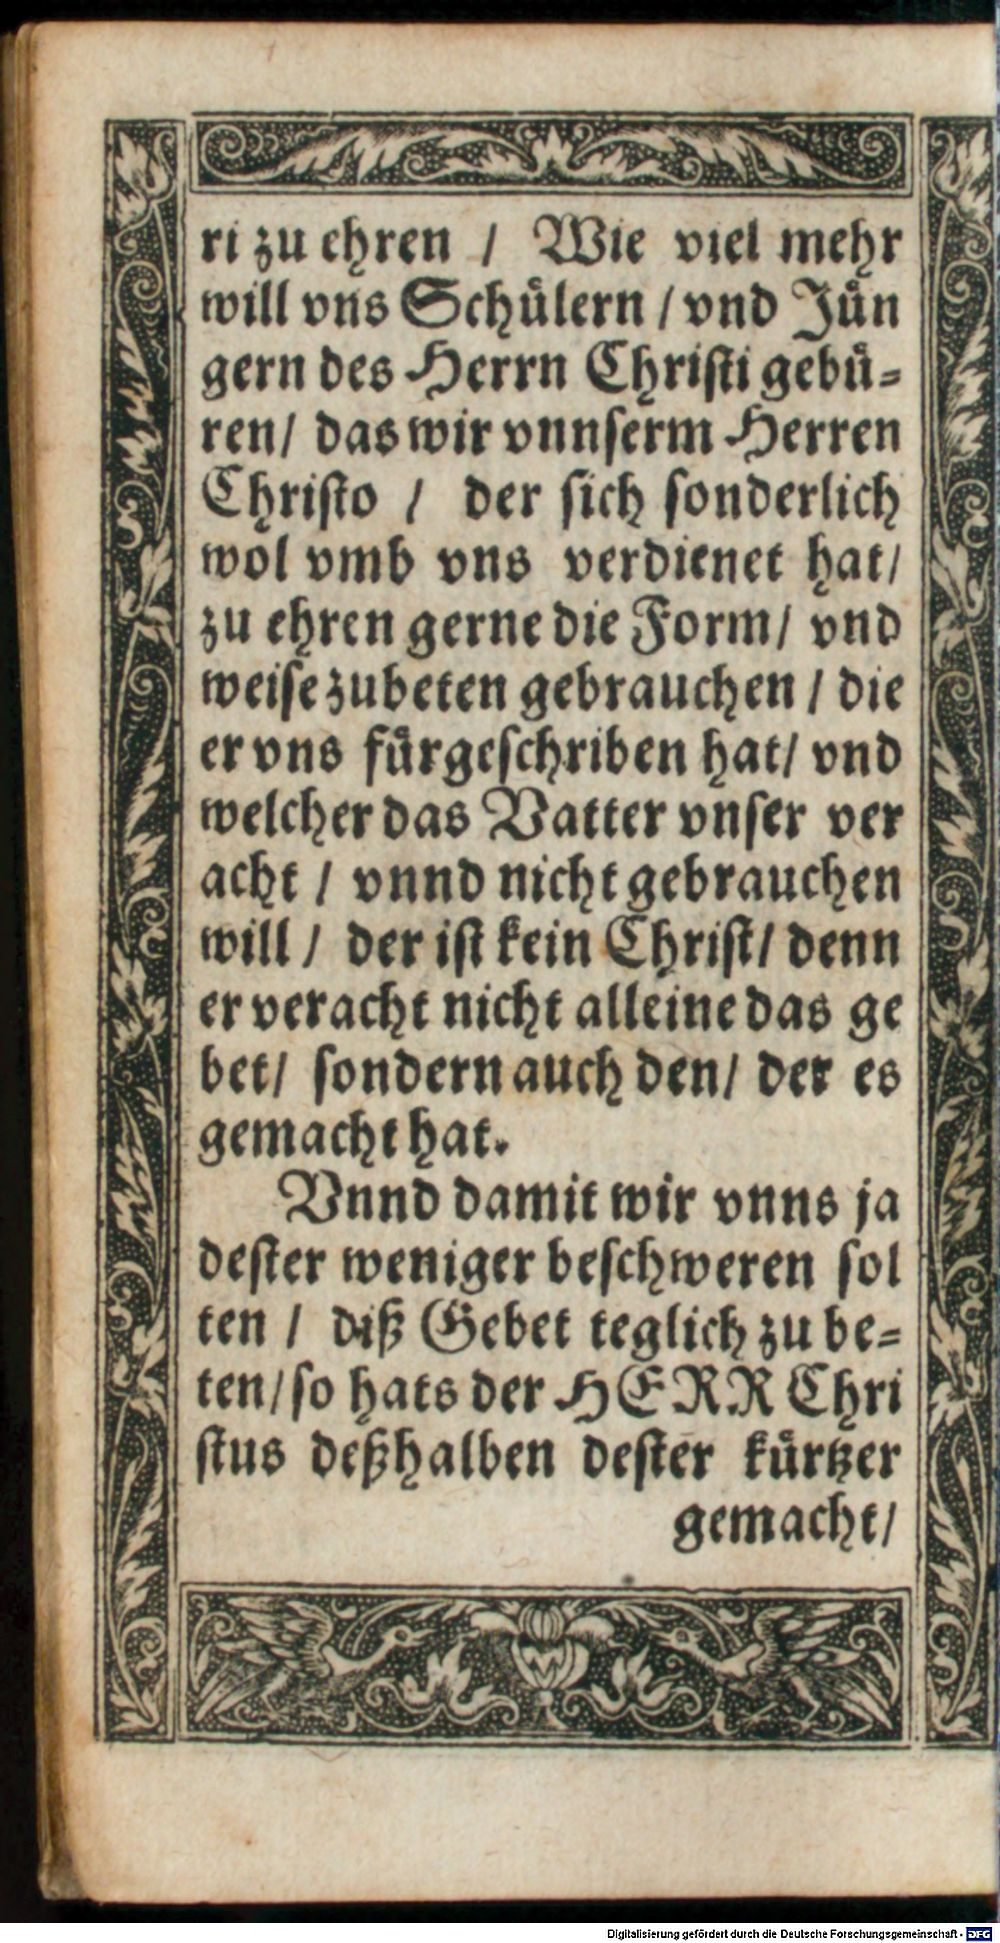 ri zu ehren / Wie viel mehr
will vns Schuͤlern / vnd Juͤn
gern des Herrn Chriſti gebuͤ-
ren / das wir vnnſerm Herren
Chriſto / der ſich ſonderlich
wol vmb vns verdienet hat /
zu ehren gerne die Form / vnd
weiſe zubeten gebrauchen / die
er vns fuͤrgeſchriben hat / vnd
welcher das Vatter vnſer ver
acht / vnnd nicht gebrauchen
will / der iſt kein Chriſt / denn
er veracht nicht alleine das ge
bet / ſondern auch den / der es
gemacht hat.
Vnnd damit wir vnns ja
deſter weniger beſchweren ſol
ten / diß Gebet teglich zu be-
ten / ſo hats der HERR Chri
ſtus deßhalben deſter kuͤrtzer
gemacht /
Digitalisierung gefördert durch die Deutsche Forschungsgemeinschaft - DFG